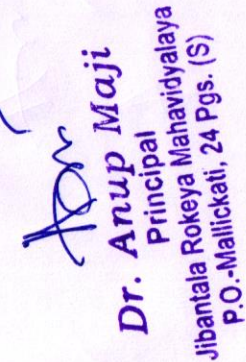 Dr. Anup Maji
Principal
Jibantala Rokeya Mahavidyalaya
P.O.-Mallickati, 24 Pgs. (S)